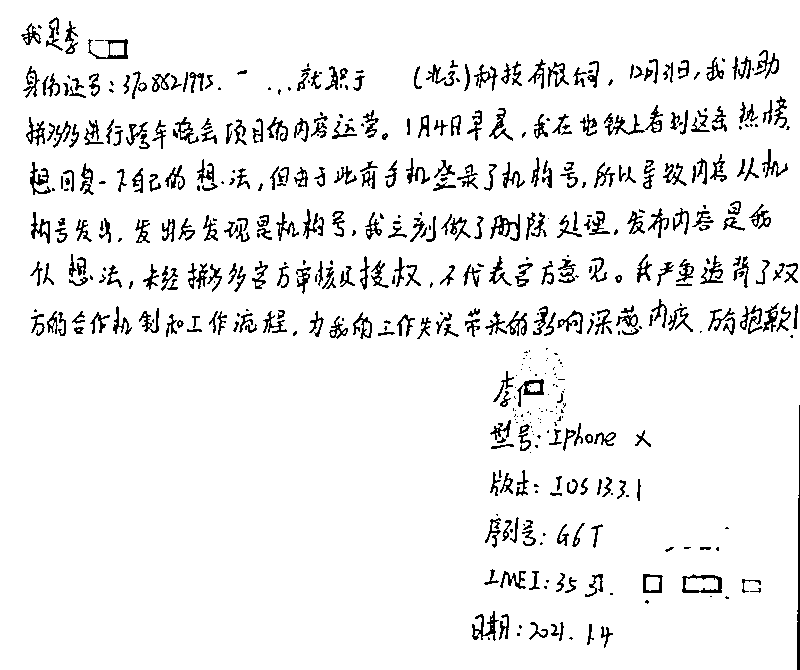 我是李
身份证号：3708821995. 就职于 (北京)科技有限公司，12月31日，我协助
拼多多进行跨年晚会项目的内容运营。1月4日早晨，我在地铁上看到这条热榜，
想回复一下自己的想法，但由于此前手机登录了机构号，所以导致内容从机
构号发出，发出后发现是机构号，我立刻做了删除处理，发布内容是我
个人想法，未经拼多多官方审核及授权，不代表官方意见。我严重违背了双
方的合作机制和工作流程，为我的工作失误带来的影响深感内疚，万分抱歉！
李
型号：Iphone X
版本：IOS 13.3.1
序列号：G6T
IMEI：35 31.
日期：2021.1.4